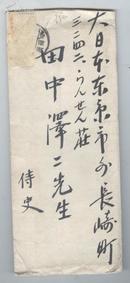 大日本东京市外長崎町
三二四二・うんせん荘
田中澤二先生
侍史